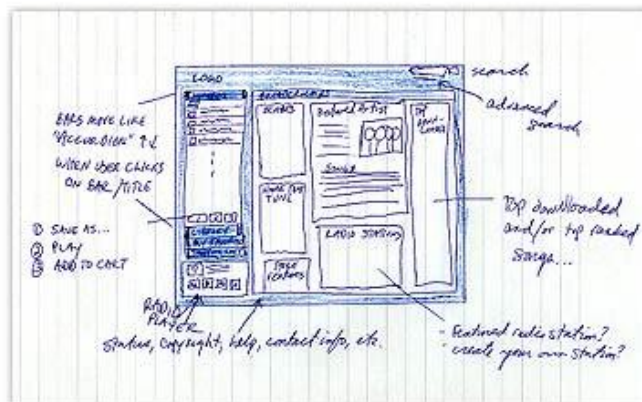 LOGO
search
advanced
search
BARS MOVE LIKE
"ACCORDION" ↑↓
WHEN USER CLICKS
ON BAR/TITLE
① SAVE AS...
② PLAY
③ ADD TO CART
GENRES
Featured Artist
Songs
NAME THAT
TUNE
RADIO STATIONS
FEATURES
TOP
DOWN-
LOADS
Top downloaded
and/or top ranked
songs...
RADIO
PLAYER
Status, copyright, help, contact info, etc.
- Featured radio station?
- create your own station?